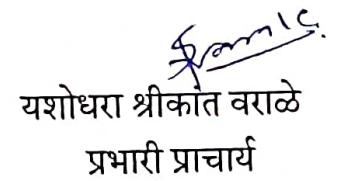 यशोधरा श्रीकांत वराळे
प्रभारी प्राचार्य